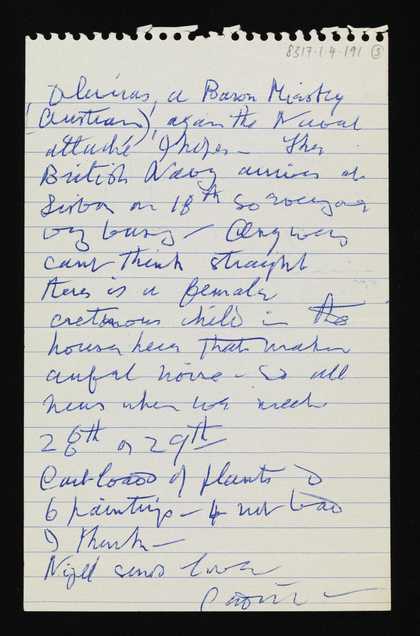 8317.1.4.191 (3)
a Baron
Austrian), again the Naval
attaché I hope – The
British Navy arrives at
Lisbon on 18th So everyone
very busy – Anyway
cant think straight
there is a female
cretinous child in the
house here that makes
awful noise – So all
news when we meet
28th or 29th
Cart load of plants &
6 paintings – 4 not bad
I think –
Nigel sends love